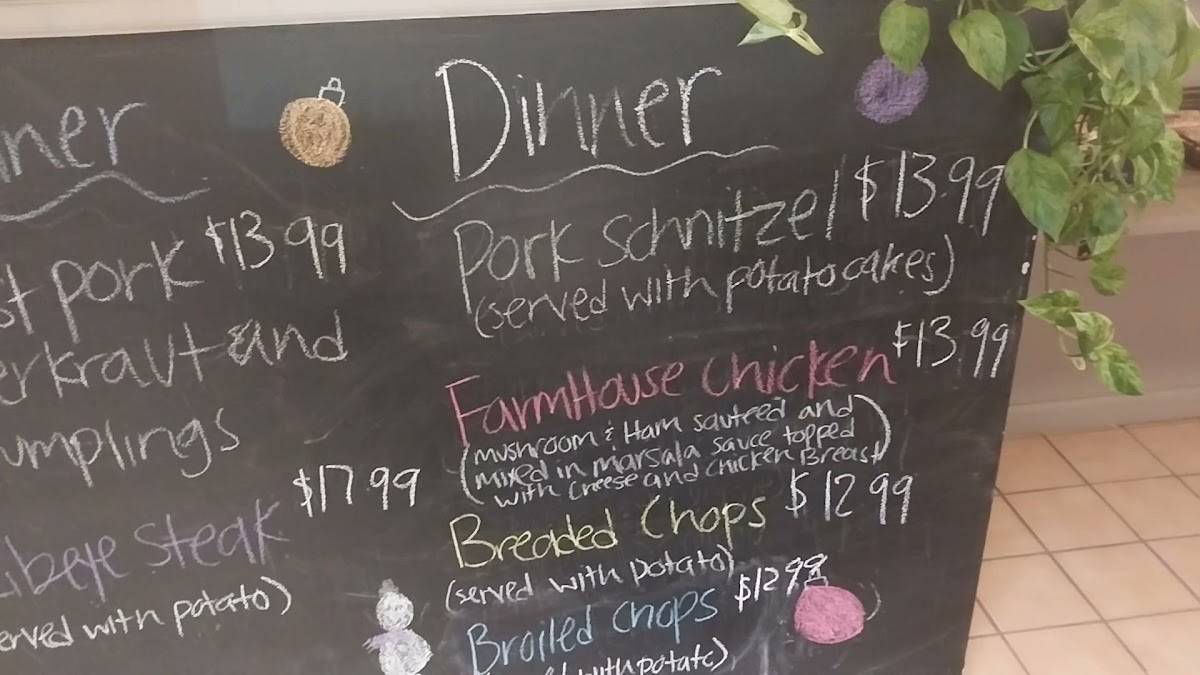 ner
st pork $13.99
erkraut and
umplings
$17.99
beye steak
erved with potato)
Dinner
Pork Schnitzel $13.99
(served with potato cakes)
FarmHouse Chicken $13.99
(mushroom & Ham sauteed and
mixed in marsala sauce topped
with cheese and chicken Breast)
Breaded Chops $12.99
(served with potato)
Broiled Chops $12.99
with potato)